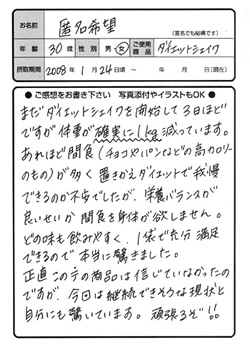 お名前 匿名希望
(匿名でも結構です)
年齢 30歳 性別 男・女 ご使用商品 ダイエットシェイク
摂取期間 2008年1月24日頃 ~ 年 月 日(現在)
●ご感想をお書き下さい 写真添付やイラストもOK●
まだダイエットシェイクを開始して3日ほど
ですが体重が確実に1kg減っています。
あれほど間食(チョコやパンなどの高カロリー
のもの)が多く置きかえダイエットで我慢
できるのか不安でしたが、栄養バランスが
良いせいか間食を身体が欲しません。
どの味も飲みやすく、1袋で充分満足
できるので本当に驚きました。
正直この手の商品は信じていなかったの
ですが、今回は継続できそうな現状と
自分にも驚いています。頑張るぞ!!